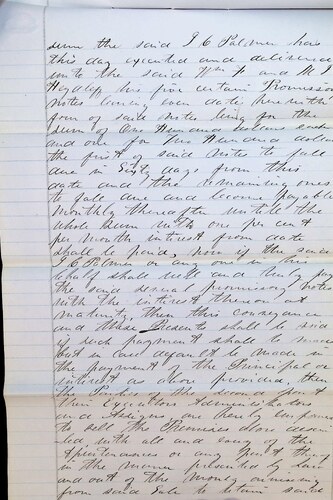 sum the said I C Palmer has
this day executed and delivered
unto the said Wm F and M
his five certain Promissory
notes bearing even date herewith
four of said notes being for the
sum of One Hundred dollars each
and one for Two Hundred dollars
the first of said notes to fall
due in Sixty days from this
date and the remaining ones
to fall due and become payable
monthly thereafter untill the
whole sum with one per cent
per month interest from date
shall be paid, now if the said
I C Palmer or any one in his
behalf shall well and truly pay
the said several promissory notes
with the interest thereon at
maturity, then this conveyance
and these Presents shall be void
if such payment shall be made
but in case default be made in
the payment of the Principal or
interest as above provided, then
the Parties of the second part
their Executors Administrators
and Assigns are hereby
to sell the Premises above descri
bed, with all and every of the
or any part
in the manner prescribed by law
and out of the money arising
from said Sale to retain said